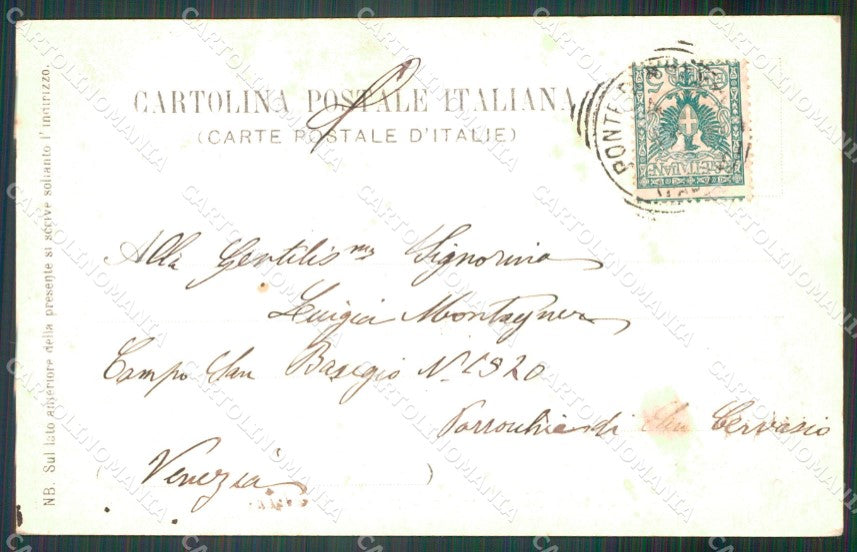 CARTOLINA POSTALE ITALIANA
(CARTE POSTALE D'ITALIE)
NB. Sul lato anteriore della presente si scrive soltanto l'indirizzo.
PONTE
Alla Gentilisma Signorina
Luigia Montagner
Campo San Basegio N. 1920
Parrochia di San Gervasio
Venezia
CARTOLINOMANIA